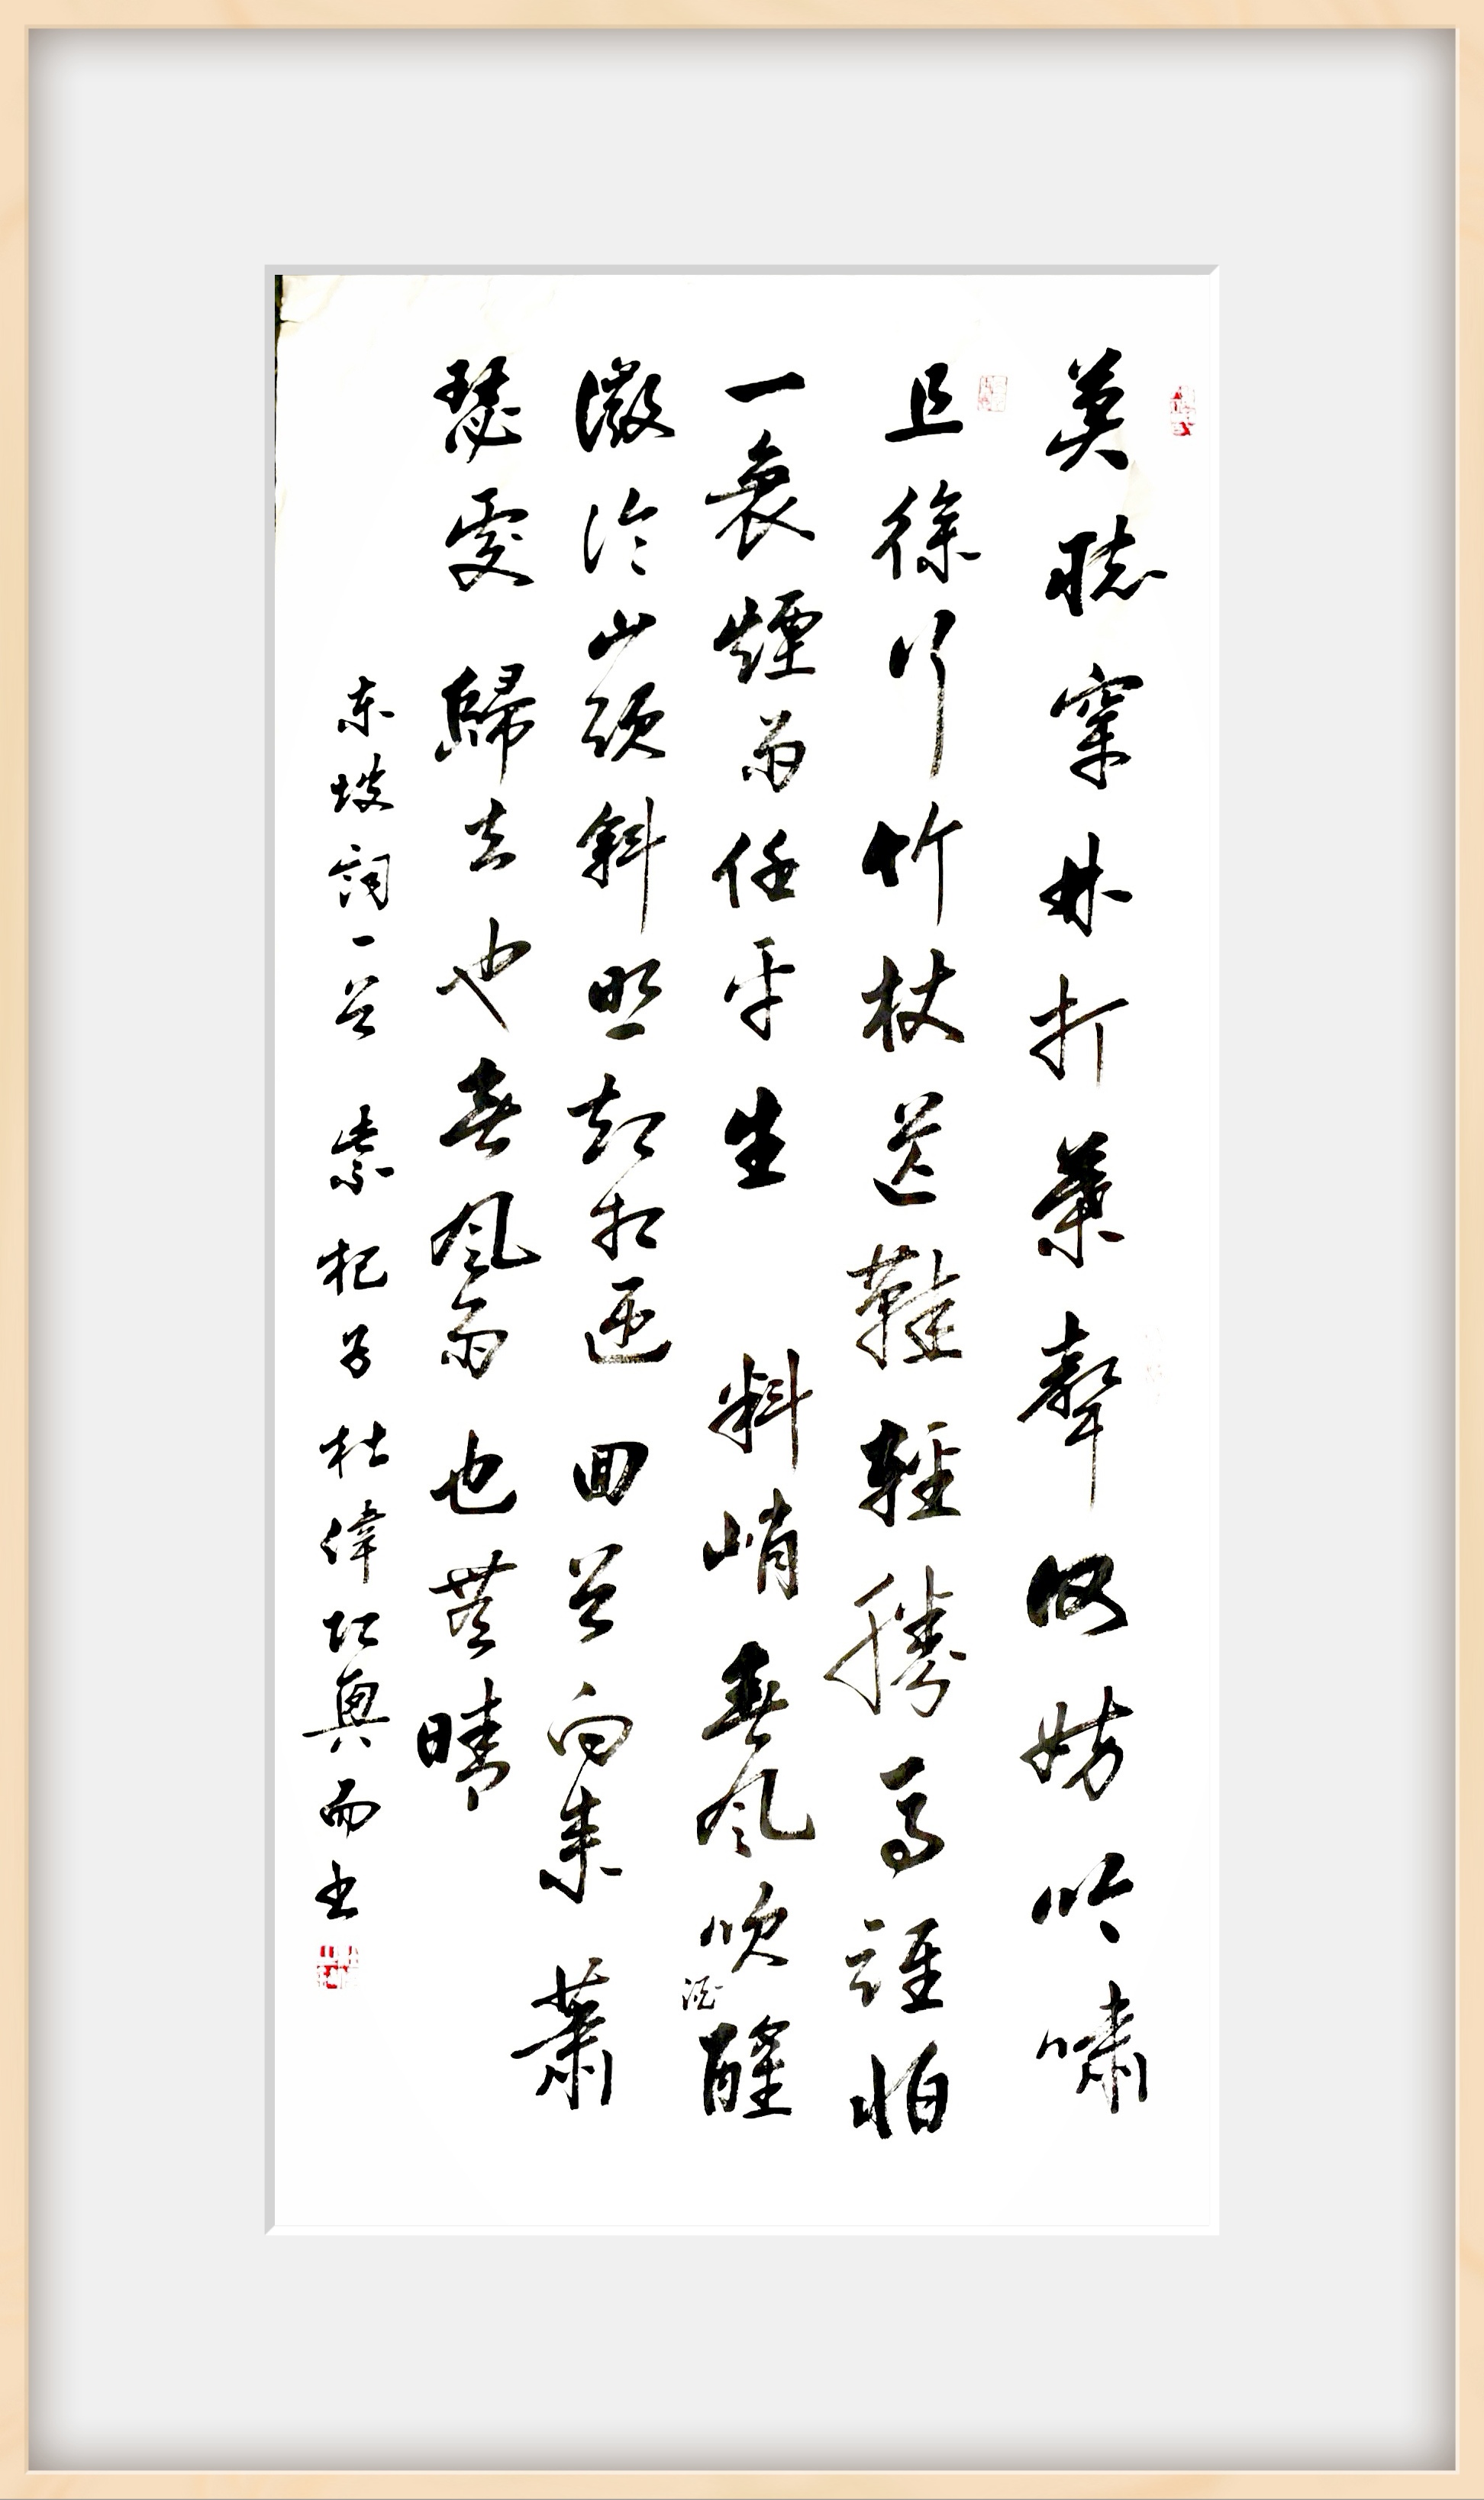 莫聴穿林打葉聲何妨吟嘯
且徐行竹杖芒鞋輕勝馬誰怕
一蓑煙雨任平生料峭春風吹酒醒
微冷山頭斜照却相迎回首向来蕭
瑟處歸去也無風雨也無晴
东坡詞一首 紫杞子杜偉興而书